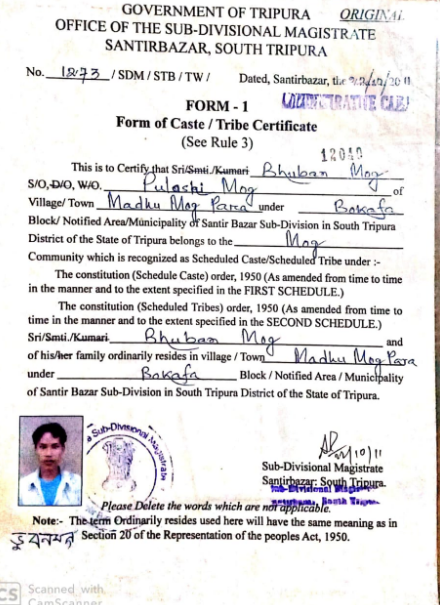 GOVERNMENT OF TRIPURA ORIGINAL
OFFICE OF THE SUB-DIVISIONAL MAGISTRATE
SANTIRBAZAR, SOUTH TRIPURA
No. 1273 / SDM / STB / TW / Dated, Santirbazar, the
FORM - 1
Form of Caste / Tribe Certificate
(See Rule 3)
12049
This is to Certify that Sri/Smti./Kumari Bhuban Mog
S/O, D/O, W/O. Pulashi Mog of
Village/ Town Madhu Mog Para under Bokafa
Block/ Notified Area/Municipality of Santir Bazar Sub-Division in South Tripura
District of the State of Tripura belongs to the Mog
Community which is recognized as Scheduled Caste/Scheduled Tribe under :-
The constitution (Schedule Caste) order, 1950 (As amended from time to time
in the manner and to the extent specified in the FIRST SCHEDULE.)
The constitution (Scheduled Tribes) order, 1950 (As amended from time to
time in the manner and to the extent specified in the SECOND SCHEDULE.)
Sri/Smti./Kumari Bhuban Mog and
of his/her family ordinarily resides in village / Town Madhu Mog Para
under Bokafa Block / Notified Area / Municipality
of Santir Bazar Sub-Division in South Tripura District of the State of Tripura.
Sub-Divisional Magistrate
Sub-Divisional Magistrate
Santirbazar: South Tripura.
Please Delete the words which are not applicable.
Note:- The term Ordinarily resides used here will have the same meaning as in
Section 20 of the Representation of the peoples Act, 1950.
CS Scanned with
CamScanner